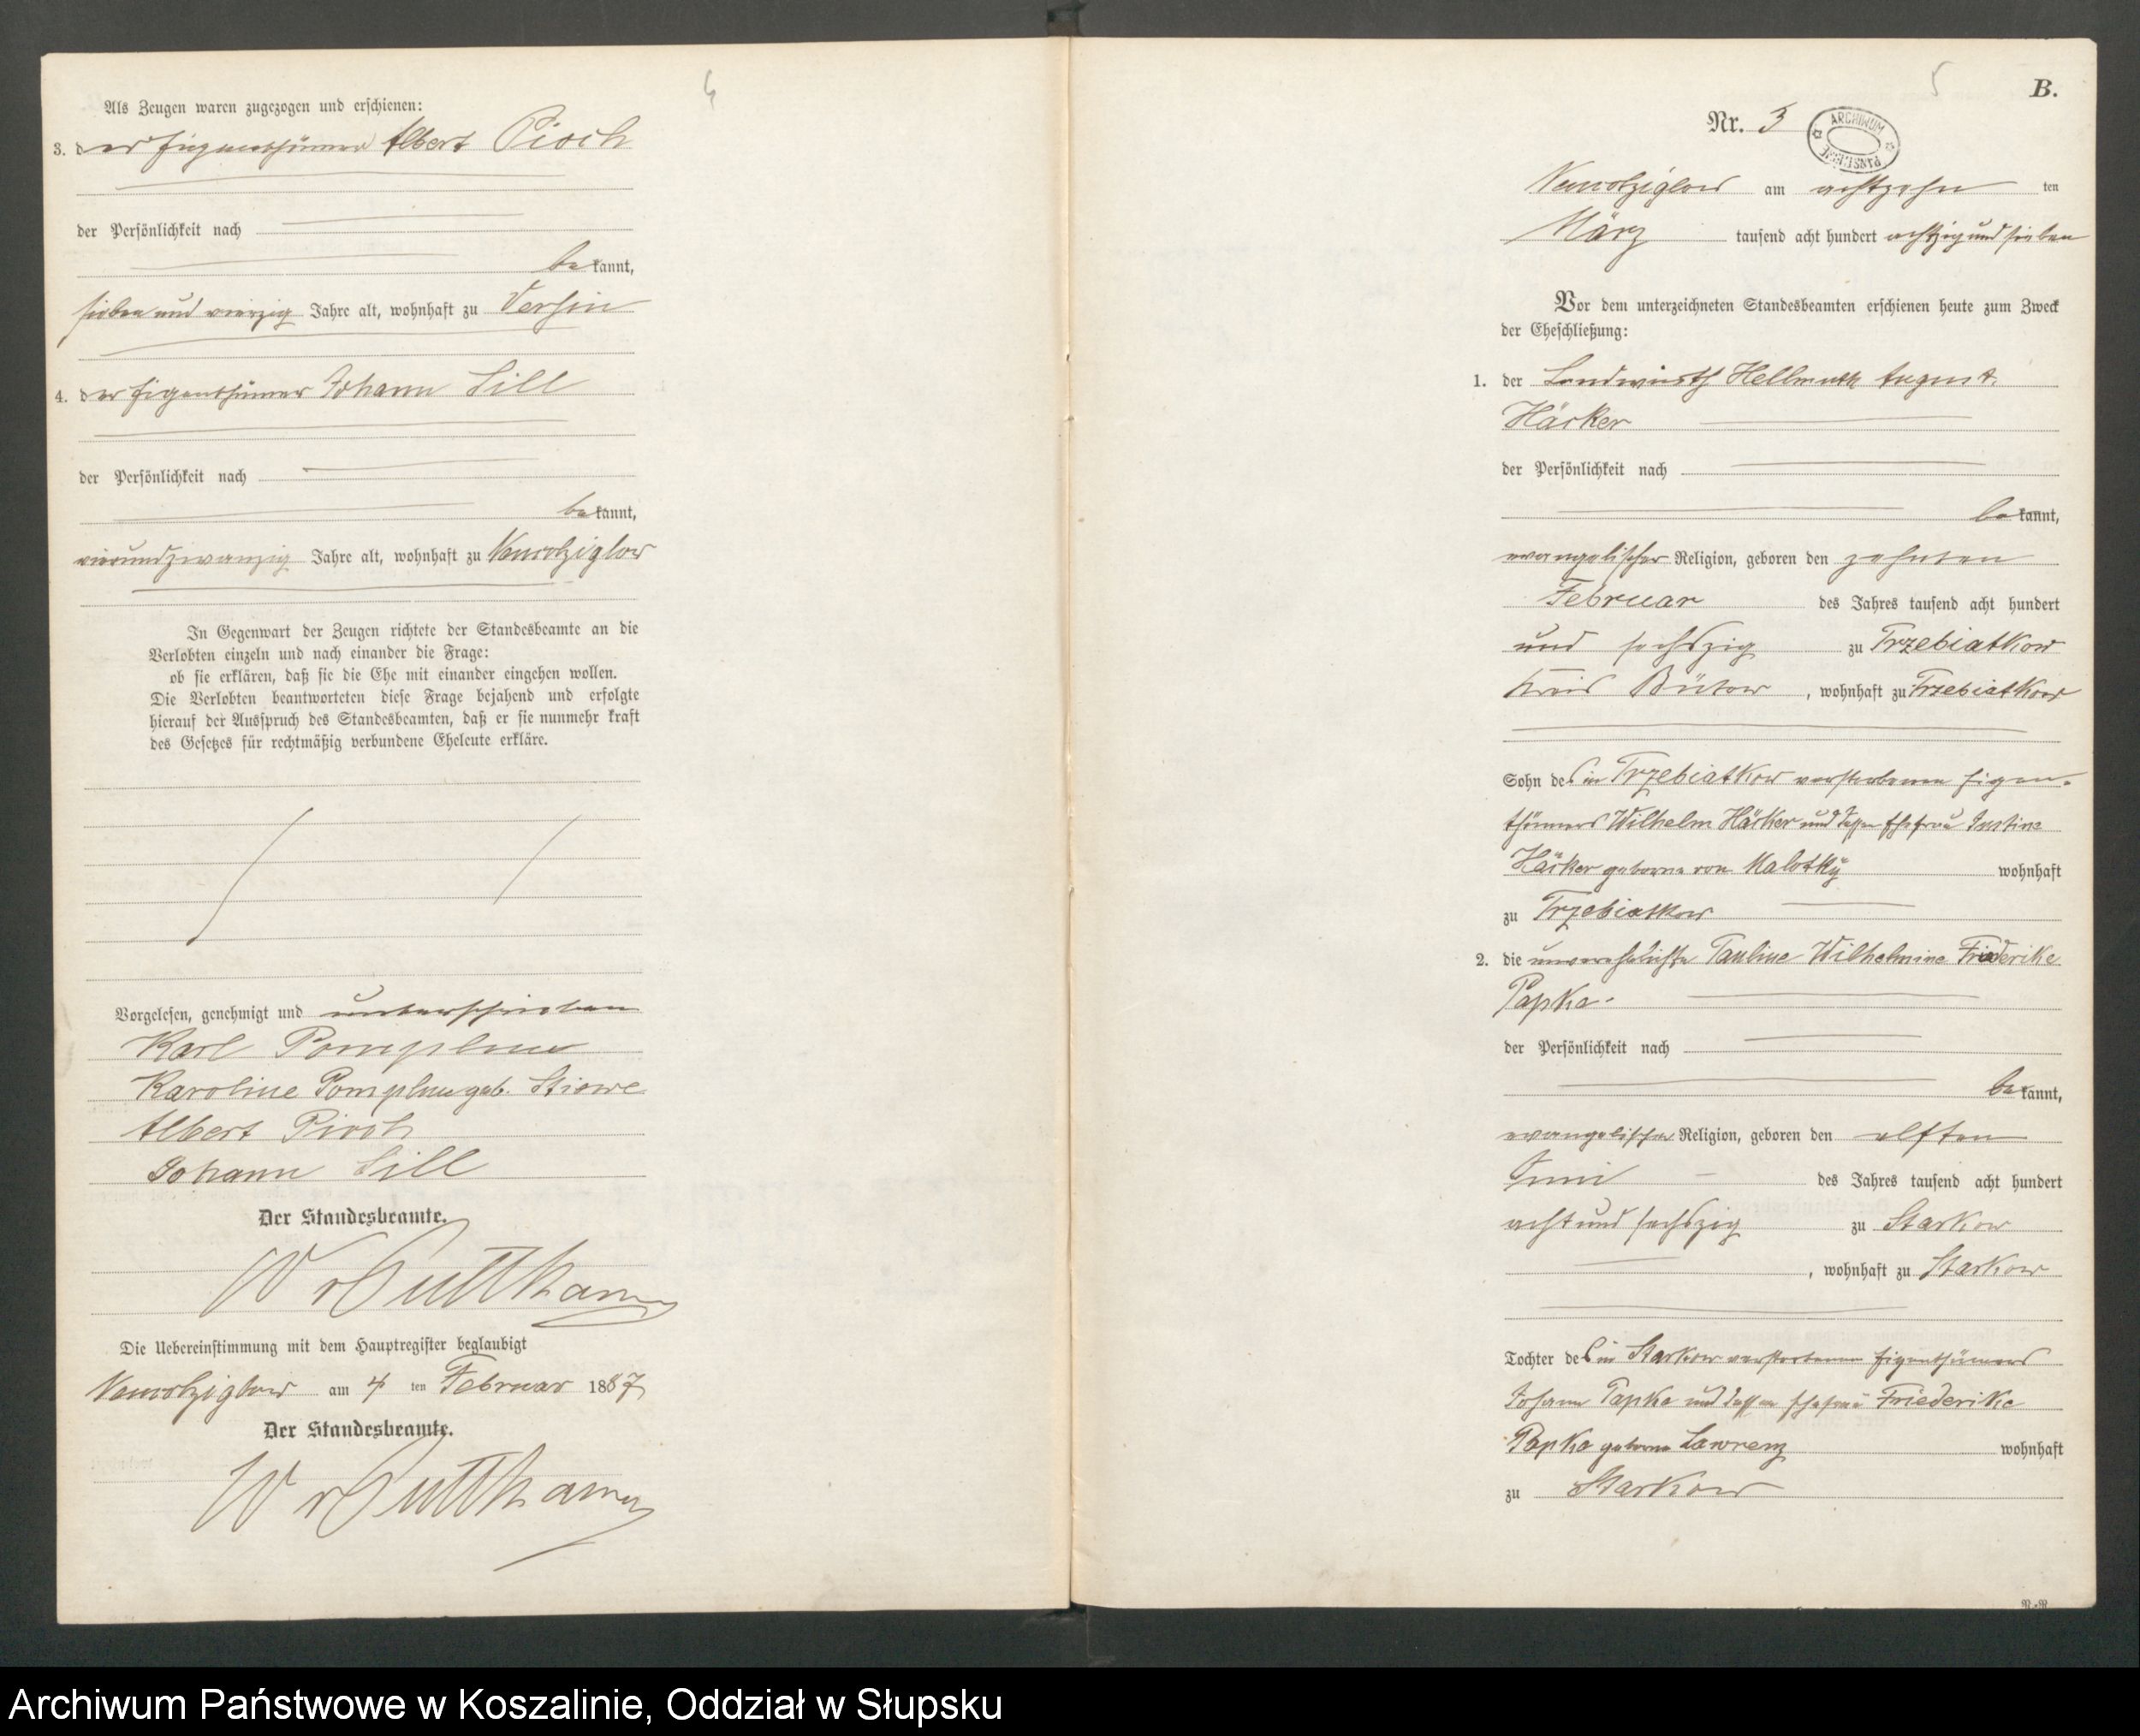 4
Als Zeugen waren zugezogen und erschienen:
3. der Eigenthümer Albert Pioch
der Persönlichkeit nach
bekannt,
sieben und vierzig Jahre alt, wohnhaft zu Versin
4. der Eigenthümer Johann Sill
der Persönlichkeit nach
bekannt,
vierundzwanzig Jahre alt, wohnhaft zu
In Gegenwart der Zeugen richtete der Standesbeamte an die
Verlobten einzeln und nach einander die Frage:
ob sie erklären, daß sie die Ehe mit einander eingehen wollen.
Die Verlobten beantworteten diese Frage bejahend und erfolgte
hierauf der Ausspruch des Standesbeamten, daß er sie nunmehr kraft
des Gesetzes für rechtmäßig verbundene Eheleute erkläre.
Vorgelesen, genehmigt und unterschrieben
Karl Pomplun
Karoline Pomplun geb. Stiewe
Albert Pioch
Johann Sill
Der Standesbeamte.
W v Puttkamer
Die Uebereinstimmung mit dem Hauptregister beglaubigt
am 4 ten Februar 1887
Der Standesbeamte.
W v Puttkamer
5
B.
Nr. 3
ARCHIWUM PAŃSTW
am achtzehn ten
März tausend acht hundert achtzig und sieben
Vor dem unterzeichneten Standesbeamten erschienen heute zum Zweck
der Eheschließung:
1. der Landwirth Hellmuth August
Häcker
der Persönlichkeit nach
bekannt,
evangelischer Religion, geboren den zehnten
Februar des Jahres tausend acht hundert
und sechszig zu Trzebiatkow
Kreis Bütow, wohnhaft zu Trzebiatkow
Sohn des in Trzebiatkow verstorbenen Eigen-
thümers Wilhelm Häcker und dessen Ehefrau Justine
Häcker geborne von Malotky wohnhaft
zu Trzebiatkow
2. die unverehelichte Pauline Wilhelmine Friederike
Papke.
der Persönlichkeit nach
bekannt,
evangelischer Religion, geboren den elften
Juni des Jahres tausend acht hundert
acht und sechszig zu Starkow
, wohnhaft zu Starkow
Tochter des in Starkow verstorbenen Eigenthümers
Johann Papke und dessen Ehefrau Friederike
Papke geborne Lawrenz wohnhaft
zu Starkow
Archiwum Państwowe w Koszalinie, Oddział w Słupsku